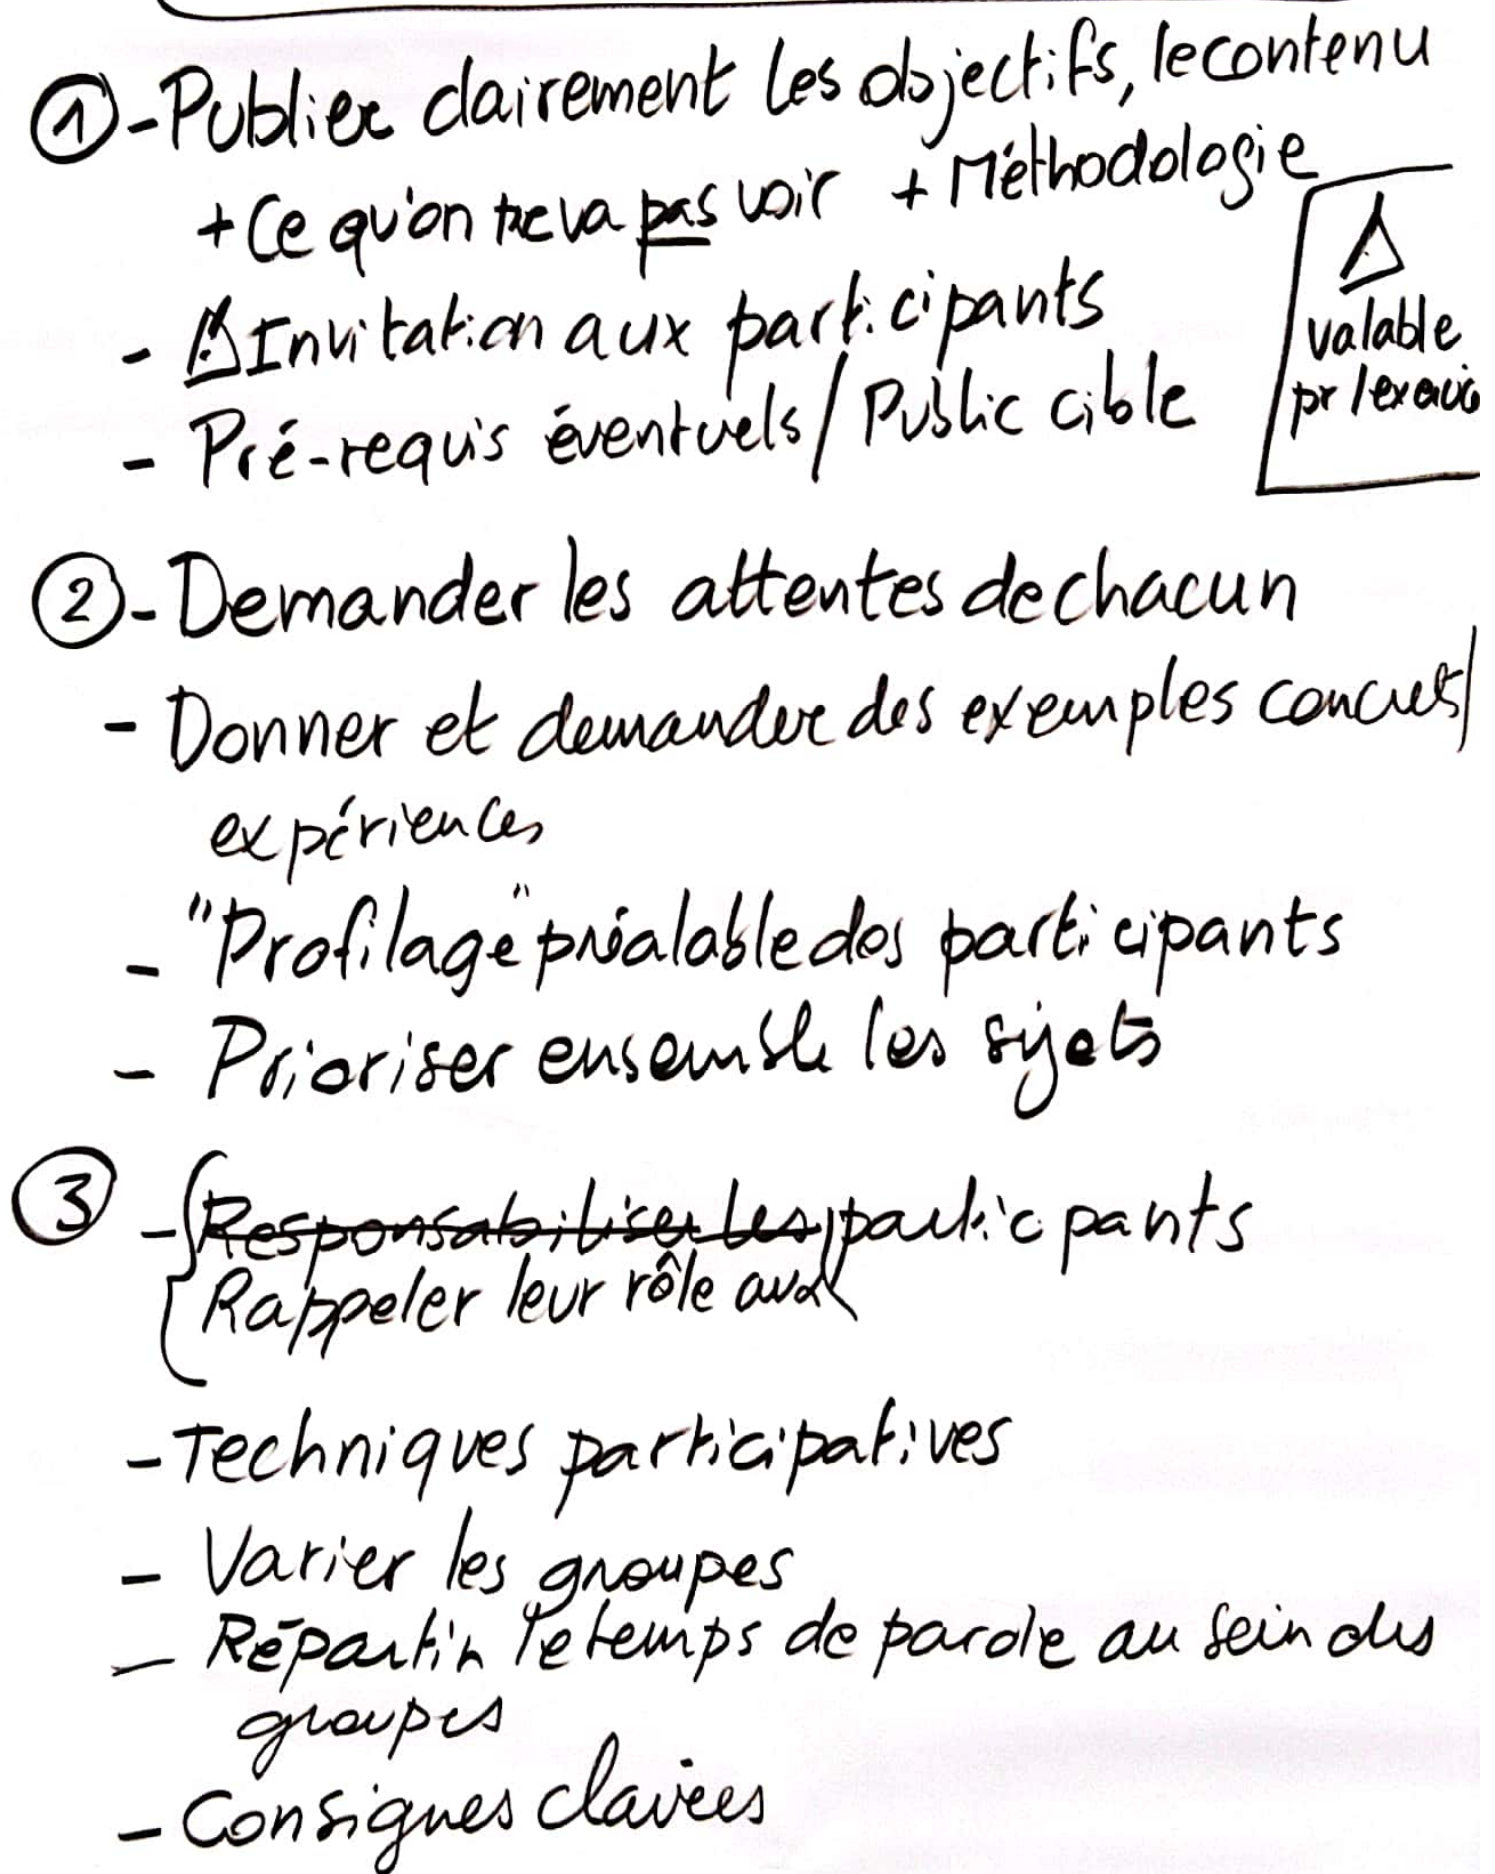 ① - Publier clairement les objectifs, le contenu
+ Ce qu'on ne va pas voir + Méthodologie
- ⚠ Invitation aux participants
- Pré-requis éventuels / Public cible
⚠
valable
pr l'exercic
② - Demander les attentes de chacun
- Donner et demander des exemples concrets /
expériences
- "Profilage" préalable des participants
- Prioriser ensemble les sujets
③ - Responsabiliser les participants
Rappeler leur rôle aux
- Techniques participatives
- Varier les groupes
- Répartir le temps de parole au sein des
groupes
- Consignes claires